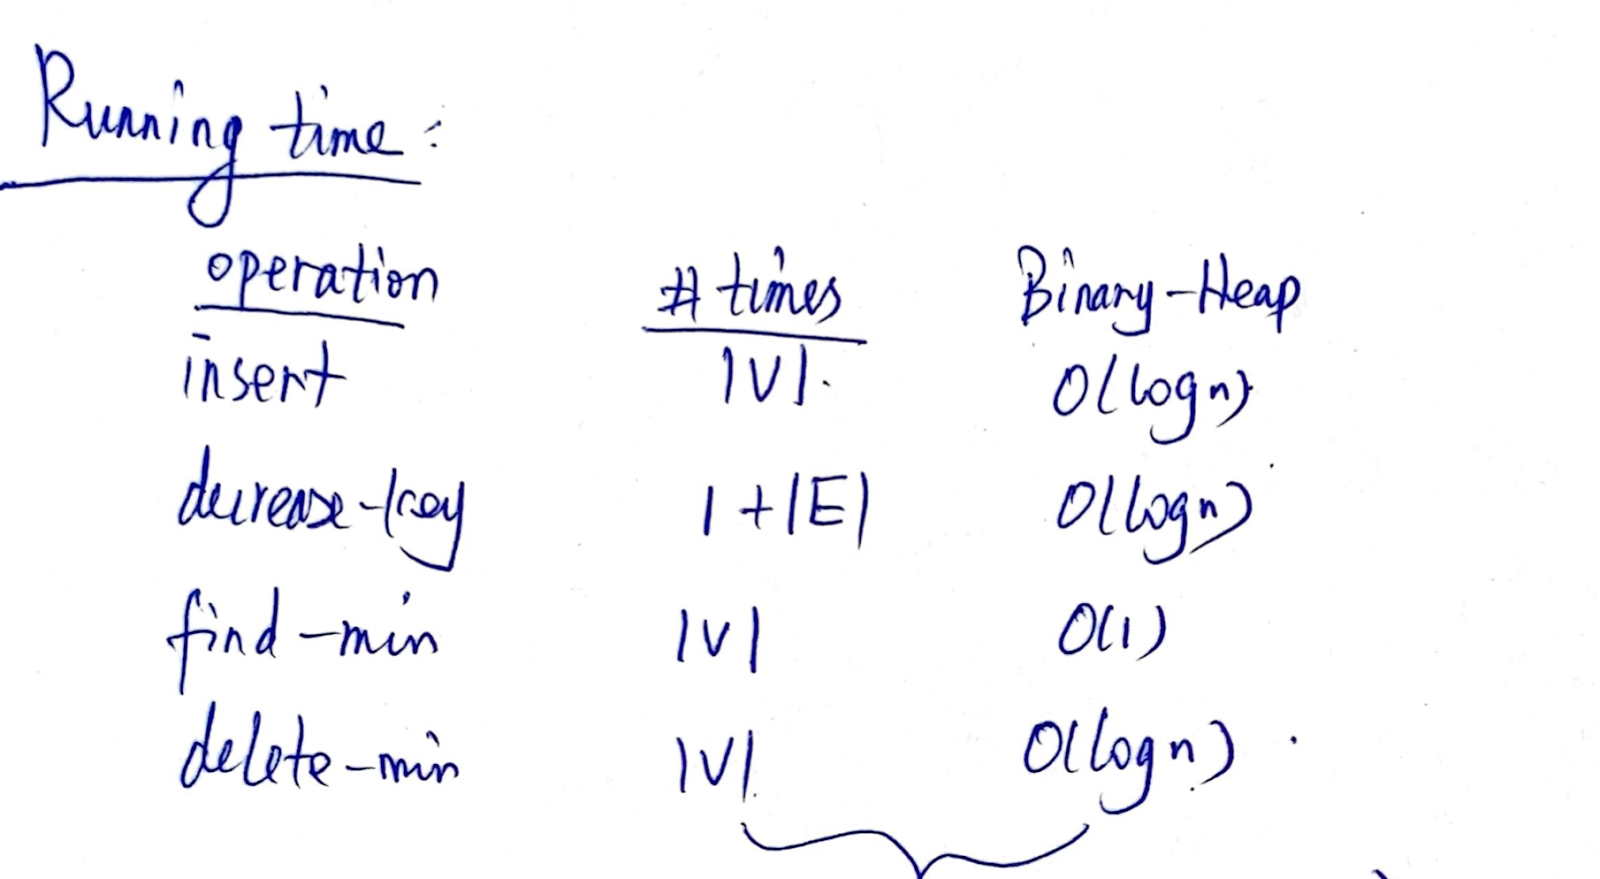 Running time:
operation # times Binary-Heap
insert |V|. O(logn)
decrease-key 1+|E| O(logn)
find-min |V| O(1)
delete-min |V|. O(logn)